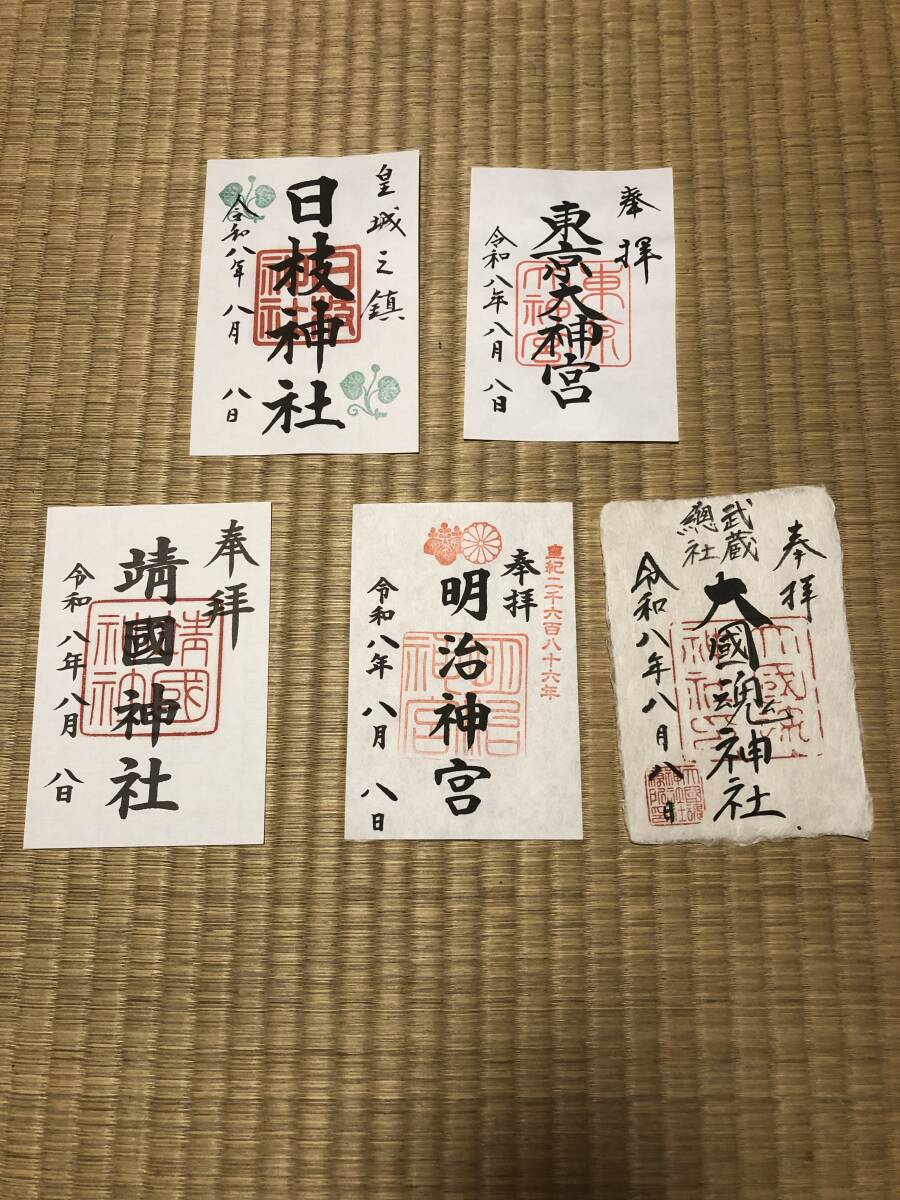 皇城之鎮
日枝神社
日枝神社
令和八年 八月 八日
奉拝
東京大神宮
東京大神宮
令和八年八月 八日
奉拝
靖國神社
靖國神社
令和八年八月 八日
皇紀二千六百八十六年
奉拝
明治神宮
明治神宮
令和八年八月 八日
奉拝
武蔵
總社
大國魂神社
令和八年八月八日